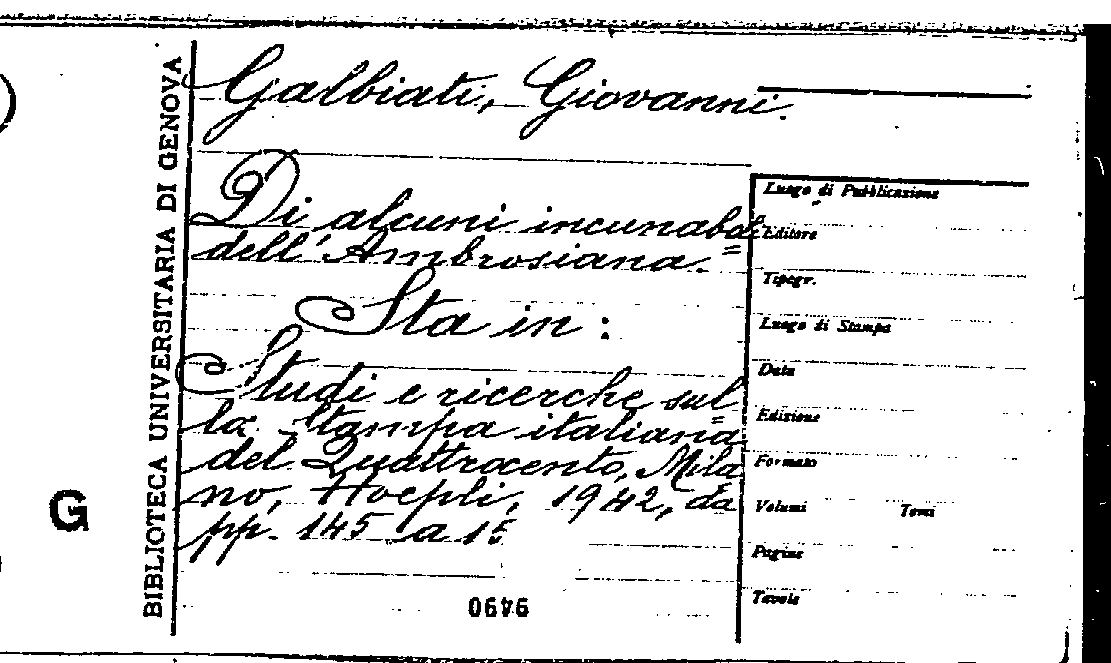 BIBLIOTECA UNIVERSITARIA DI GENOVA
G
Galbiati, Giovanni.
Di alcuni incunaboli
dell'Ambrosiana.=
Sta in:
Studi e ricerche sul=
la stampa italiana
del Quattrocento, Mila
no, Hoepli, 1942, da
pp. 145 a
9490
Luogo di Pubblicazione
Editore
Tipogr.
Luogo di Stampa
Data
Edizione
Formato
Volumi Tomi
Pagine
Tavole